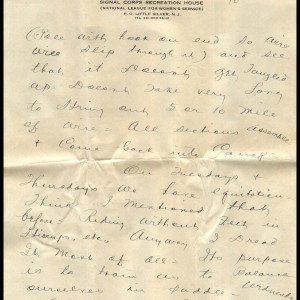 SIGNAL CORPS RECREATION HOUSE
(NATIONAL LEAGUE FOR WOMEN'S SERVICE)
P. O. LITTLE SILVER, N. J.
(Pole with hook on end so wire
wire slip through it) and see
that it Doesnt get Tangled
up. Doesnt Take very Long
to string out 5 or 10 mile
of wire - All sections assemble
+ Come back into Camp.
On Tuesdays +
Thursdays We have equitation -
Think I Mentioned that
before - Riding Without feet in
stirrups, etc Anyway I Dread
It Most of all - Its purpose
is to train us to Balance
ourselves in saddle -